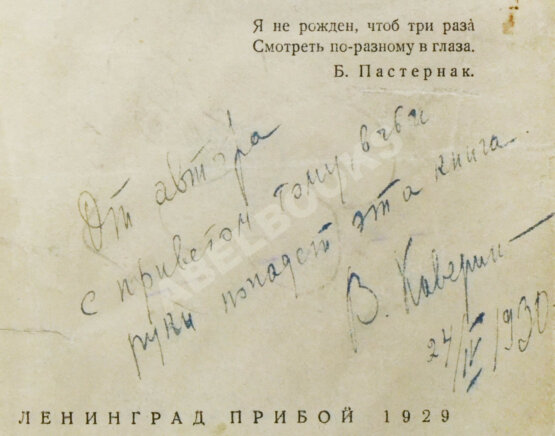 Я не рожден, чтоб три раза́
Смотреть по-разному в глаза.
Б. Пастернак.
От автора
с приветом тому, в чьи
руки попадет эта книга.
В. Каверин
24/IV 1930
ABELBOOKS
ЛЕНИНГРАД ПРИБОЙ 1929